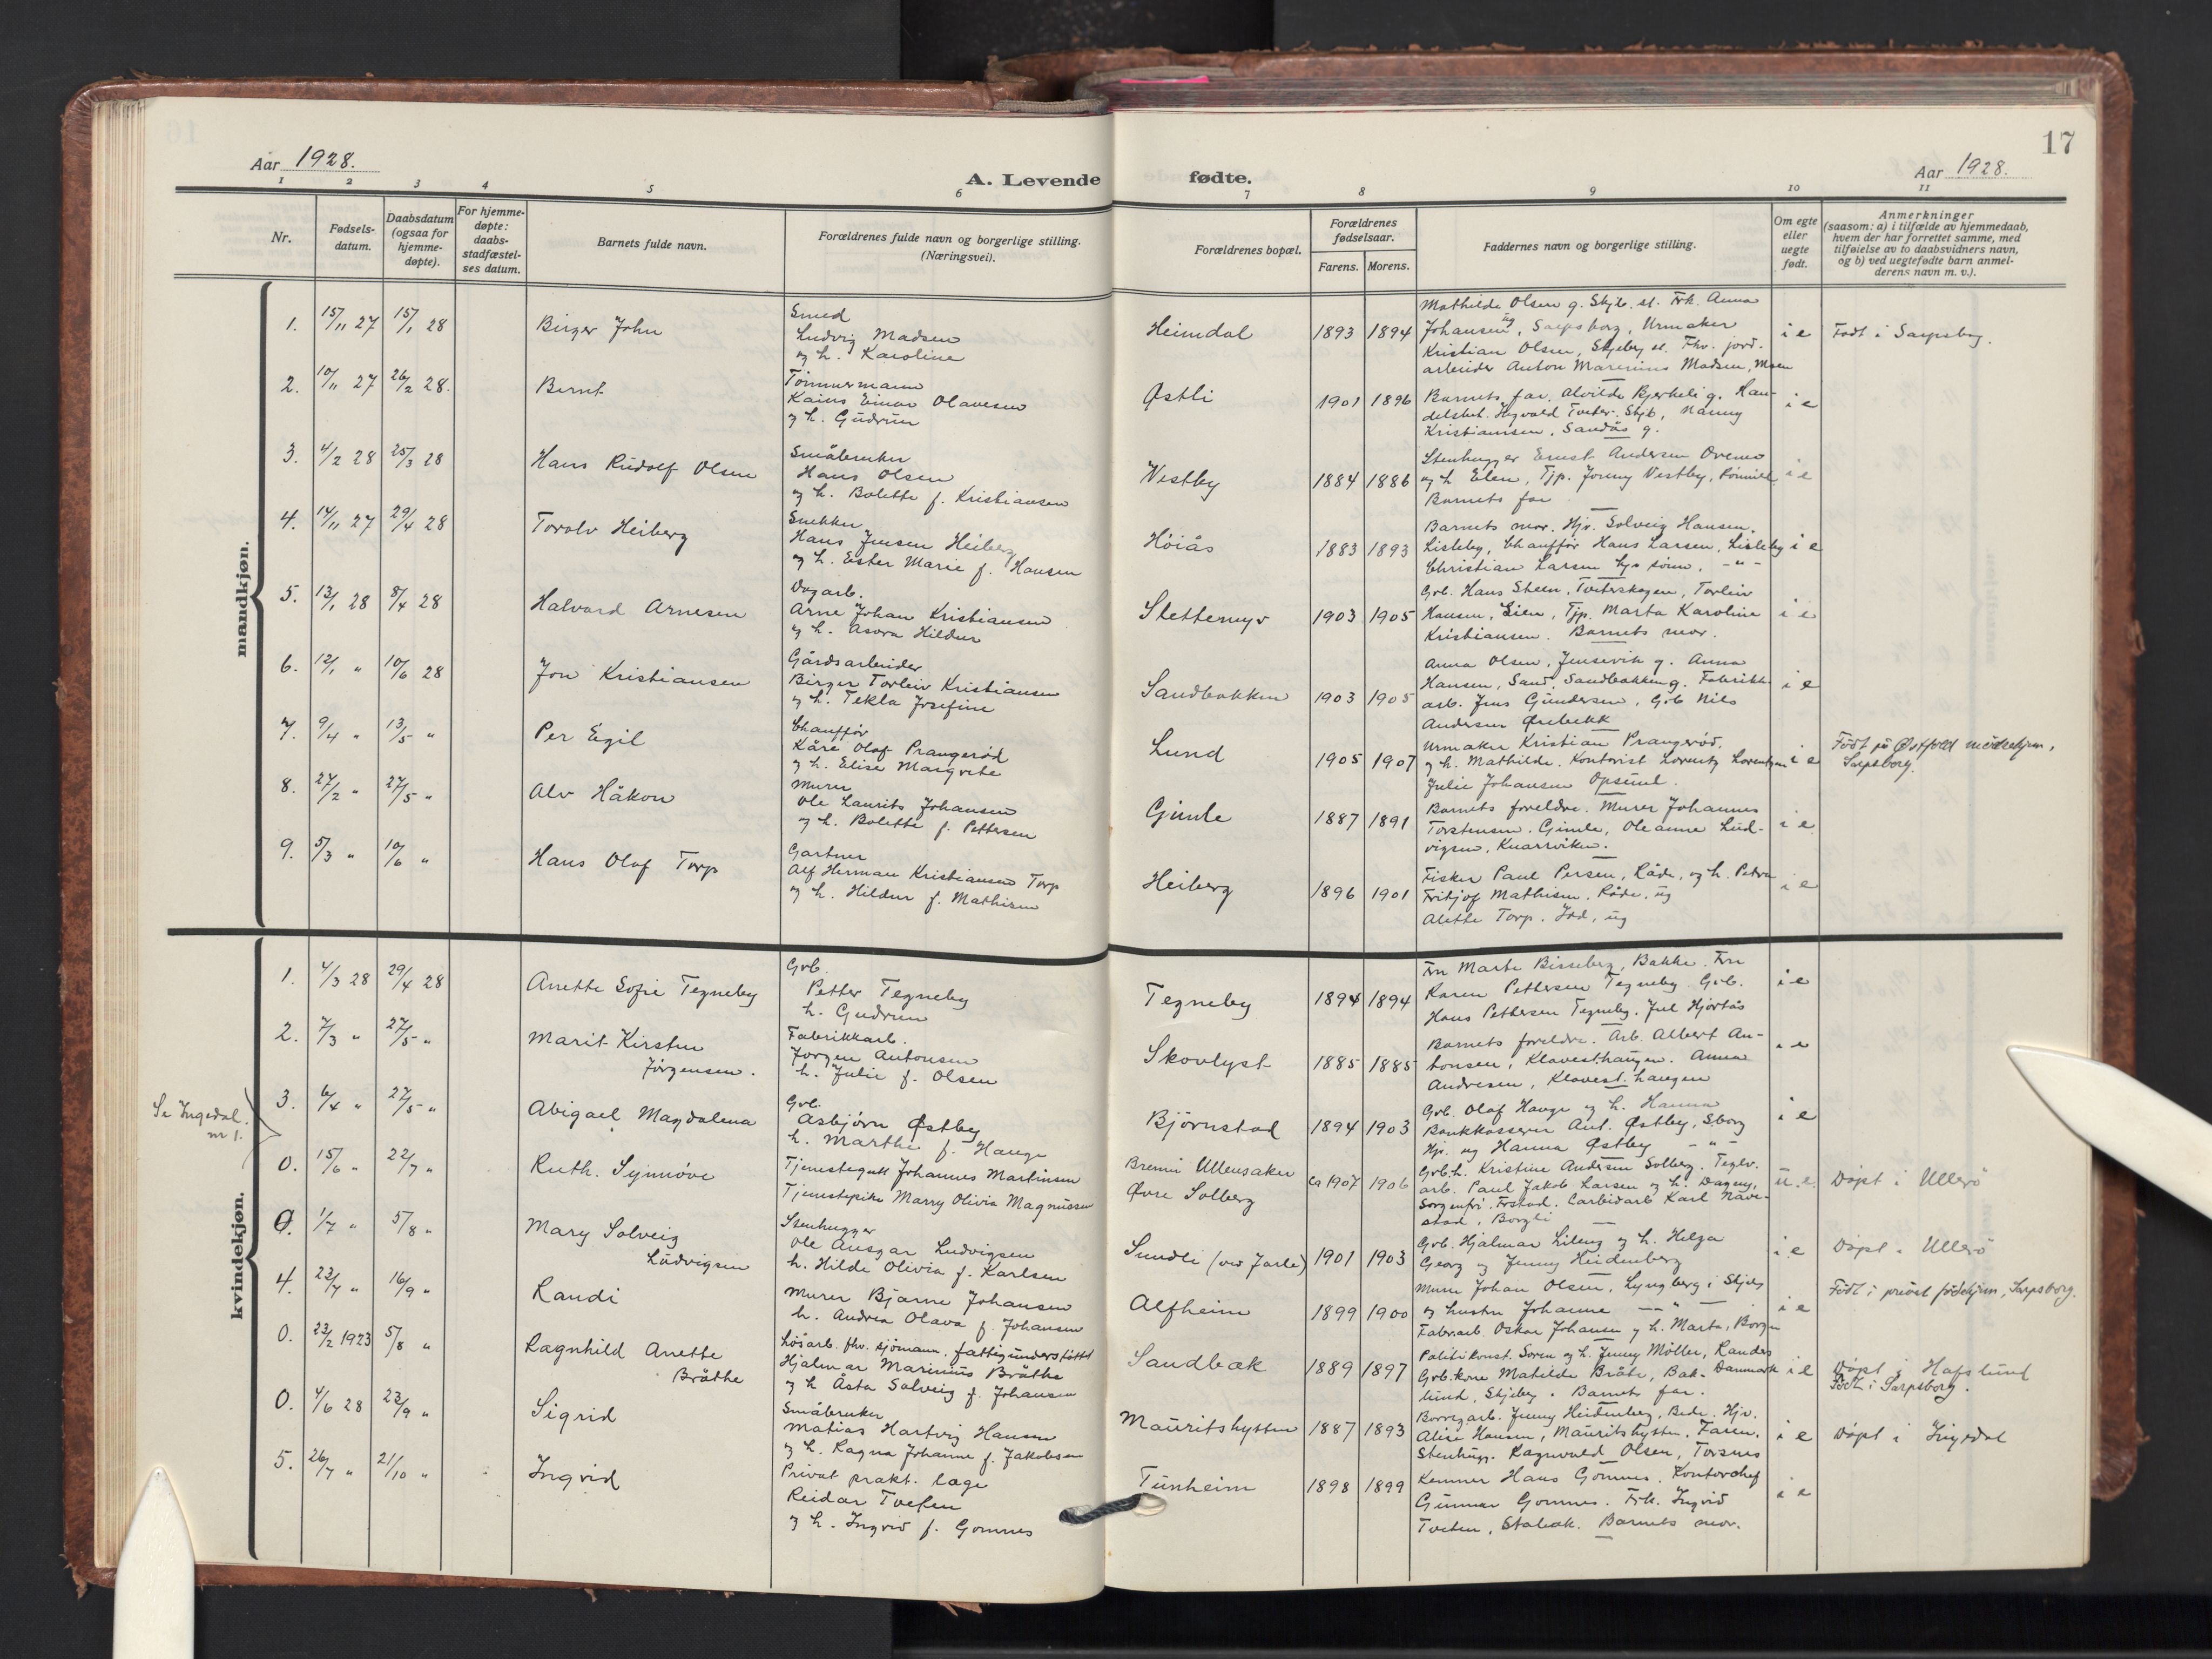 17
Aar 1928.
A. Levende fødte.
Aar 1928.
1 2 3 4 5 6 7 8 9 10 11
Nr.
Fødsels-
datum.
Daabsdatum
(ogsaa for
hjemme-
døpte).
For hjemme-
døpte:
daabs-
stadfæstel-
ses datum.
Barnets fulde navn.
Forældrenes fulde navn og borgerlige stilling.
(Næringsvei).
Forældrenes bopæl.
Forældrenes
fødselsaar.
Farens. Morens.
Faddernes navn og borgerlige stilling.
Om egte
eller
uegte
født.
Anmerkninger
(saasom: a) i tilfælde av hjemmedaab,
hvem der har forrettet samme, med
tilføielse av to daabsvidners navn,
og b) ved uegtefødte barn anmel-
derens navn m. v.).
mandkjøn.
1. 15/11 27 15/1 28 Birger John
Smed
Ludvig Madsen
og h. Karoline
Heimdal 1893 1894
Mathilde Olsen g. Skjb. st. Frk. Anna
Johansen ug, Sarpsborg, Urmaker
Kristian Olsen, Skjeberg st. Fhv. jord-
arbeider Anton Marenius Madsen, Moen
i e Født i Sarpsborg.
2. 10/11 27 26/2 28. Bernt
Tömmermann
Kaius Einar Olavesen
og h. Gudrun
Østli 1901 1896
Barnets far. Alvilde Bjerkeli g. Han-
delsbet. Hygvald Tveter. Skjb, Nanny
Kristiansen. Sandås g.
i e
3. 4/2 28 25/3 28 Hans Rudolf Olsen
Småbruker
Hans Olsen
og h. Bolette f. Kristiansen
Vestby 1884 1886
Stenhugger Ernst Andersen
og h Elen, Tjp. Jenny Vestby,
Barnets far
i e
4. 14/11 27 29/4 28 Torolv Heiberg
Snekker
Hans Jensen Heiberg
og h. Ester Marie f. Hansen
Höiås 1883 1893
Barnets mor. Hjv. Solveig Hansen.
Lisleby, Chauffør Hans Larsen, Lisleby
Christian Larsen sönn. - " -
i e
5. 13/1 28 8/4 28 Halvard Arnesen
Dagarb.
Arne Johan Kristiansen
og h. Asora Hildur
Slettemyr 1903 1905
Grb. Hans Steen, Tveterskogen, Torleiv
Hansen, Lien, Tjp. Marta Karoline
Kristiansen. Barnets mor.
i e
6. 12/1 " 10/6 28 Jon Kristiansen
Gårdsarbeider
Birger Torleiv Kristiansen
og h. Tekla Josefine
Sandbakken 1903 1905
Anna Olsen, Jensevik g. Anna
Hansen, Sand, Sandbakken g. Fabrikk-
arb. Jens Gundersen, Grb Nils
Andersen Ørebekk
i e
7. 9/4 " 13/5 " Per Egil
Chauffør
Kåre Olaf Prangeröd
og h. Elise Margrete
Lund 1905 1907
Urmaker Kristian Prangeröd.
og h. Mathilde. Kontorist Lorentz Lorentzen
Julie Johansen Opsund.
i e Födt på Østfold mödrehjem,
Sarpsborg.
8. 27/2 " 27/5 " Alv Håkon
Murer
Ole Laurits Johansen
og h. Bolette f. Pettersen
Gimle 1887 1891
Barnets foreldre. Murer Johannes
Torstensen. Gimle, Oleanne Lud-
vigsen, Knarrviken.
i e
9. 5/3 " 10/6 " Hans Olaf Torp
Gartner
Alf Herman Kristiansen Torp
og h. Hildur f. Mathisen
Heiberg 1896 1901
Fisker Paul Persen, Råde, og h. Petra
Fritjof Mathisen. Råde. ug
Alette Torp. ug
i e
kvindekjøn.
1. 4/3 28 29/4 28 Anette Sofie Tegneby
Grb.
Petter Tegneby
h. Gudrun
Tegneby 1894 1894
Fru Marte Bisseberg, Bakke. Fru
Karen Pettersen Tegneby. Grb.
Hans Pettersen Tegneby. Jul Hjortås
i e
2. 7/3 " 27/5 " Marit Kirsten
Jörgensen.
Fabrikkarb.
Jörgen Antonsen
h. Julie f. Olsen
Skovlyst 1885 1885
Barnets foreldre. Arb. Albert An-
tonsen, Klavesthaugen. Anna
Andresen, Klavest. haugen
i e
Se Ingedal.
nr 1.
3. 6/4 " 27/5 " Abigael Magdalena
Grb.
Asbjörn Østby
h. Marthe f. Hauge
Björnstad 1894 1903
Grb. Olaf Hauge og h. Hanna
Bankkasserer Ant. Østby, Sborg
Hjv. ug Hanna Østby - " -
i e
0. 15/6 " 22/7 " Ruth. Synnöve
Tjenestegutt Johannes Martinsen
Tjenestepike Marry Olivia Magnussen
Brenni Ullensaker
Øvre Solberg
ca 1907 1906
Grb. h. Kristine Andersen Solberg. Teglv.
arb. Paul Jakob Larsen og h. Dagny,
Sorgenfri. Frstad. Carbidarb Karl Näve-
stad, Borgli
u. e. Döpt i Ullerö
0. 1/7 " 5/8 " Mary Solveig
Ludvigsen
Stenhugger
Ole Ansgar Ludvigsen
h. Hilde Olivia f. Karlsen
Sundli (ved Jarle) 1901 1903
Grb. Hjalmar Lileng og h. Helga
Georg og Jenny Heidenberg
i e Döpt i Ullerö
4. 23/7 " 16/9 " Randi
Murer Bjarne Johansen
h. Andrea Olava f. Johansen
Alfheim 1899 1900
Murer Johan Olsen, Lyngberg i Skjeb
og hustru Johanne - " -
Fabr.arb. Oskar Johansen og h. Marta, Borgen
i e Födt i privat fødehjem, Sarpsborg.
0. 23/2 1923 5/8 " Ragnhild Anette
Bråthe
Lösarb. fhv. sjömann. fattigunderstöttet
Hjalmar Marinius Bråthe
og h Åsta Solveig f. Johansen
Sandbæk 1889 1897
Politikonst. Soren og h. Jenny Möller, Randers
Grb.kone Matilde Bråte, Bak- Danmark
lund, Skjeberg. Barnets far.
i e Döpt i Hafslund
Födt i Sarpsborg.
0. 4/6 28 23/9 " Sigrid
Småbruker
Matias Hartvig Hansen
og h. Ragna Johanne f. Jakobsen
Mauritshytten 1887 1893
Borregarb. Jenny Heidenberg, Bede. Hjv.
Alise Hansen, Mauritshytten. Faren.
Stenhugg. Ragnvald Olsen, Torsnes
i e Döpt i Ingedal
5. 26/7 " 21/10 " Ingrid
Privat prakt. læge
Reidar Tveten
og h. Ingrid f. Gomnes
Tunheim 1898 1899
Kemner Hans Gomnes. Kontorchef
Gunnar Gomnes. Frk. Ingrid
Tveten, Stabæk. Barnets mor.
i e